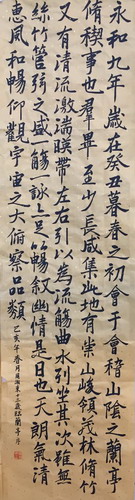 永和九年歲在癸丑暮春之初會于會稽山陰之蘭亭
脩稧事也羣畢至少長咸集此地有崇山峻領茂林脩竹
又有清流激湍暎帶左右引以為流觴曲水列坐其次雖無
絲竹管弦之盛一觴一詠亦足以暢敘幽情是日也天朗氣清
惠風和暢仰觀宇宙之大俯察品類
己亥年春月 十三歲臨蘭亭序